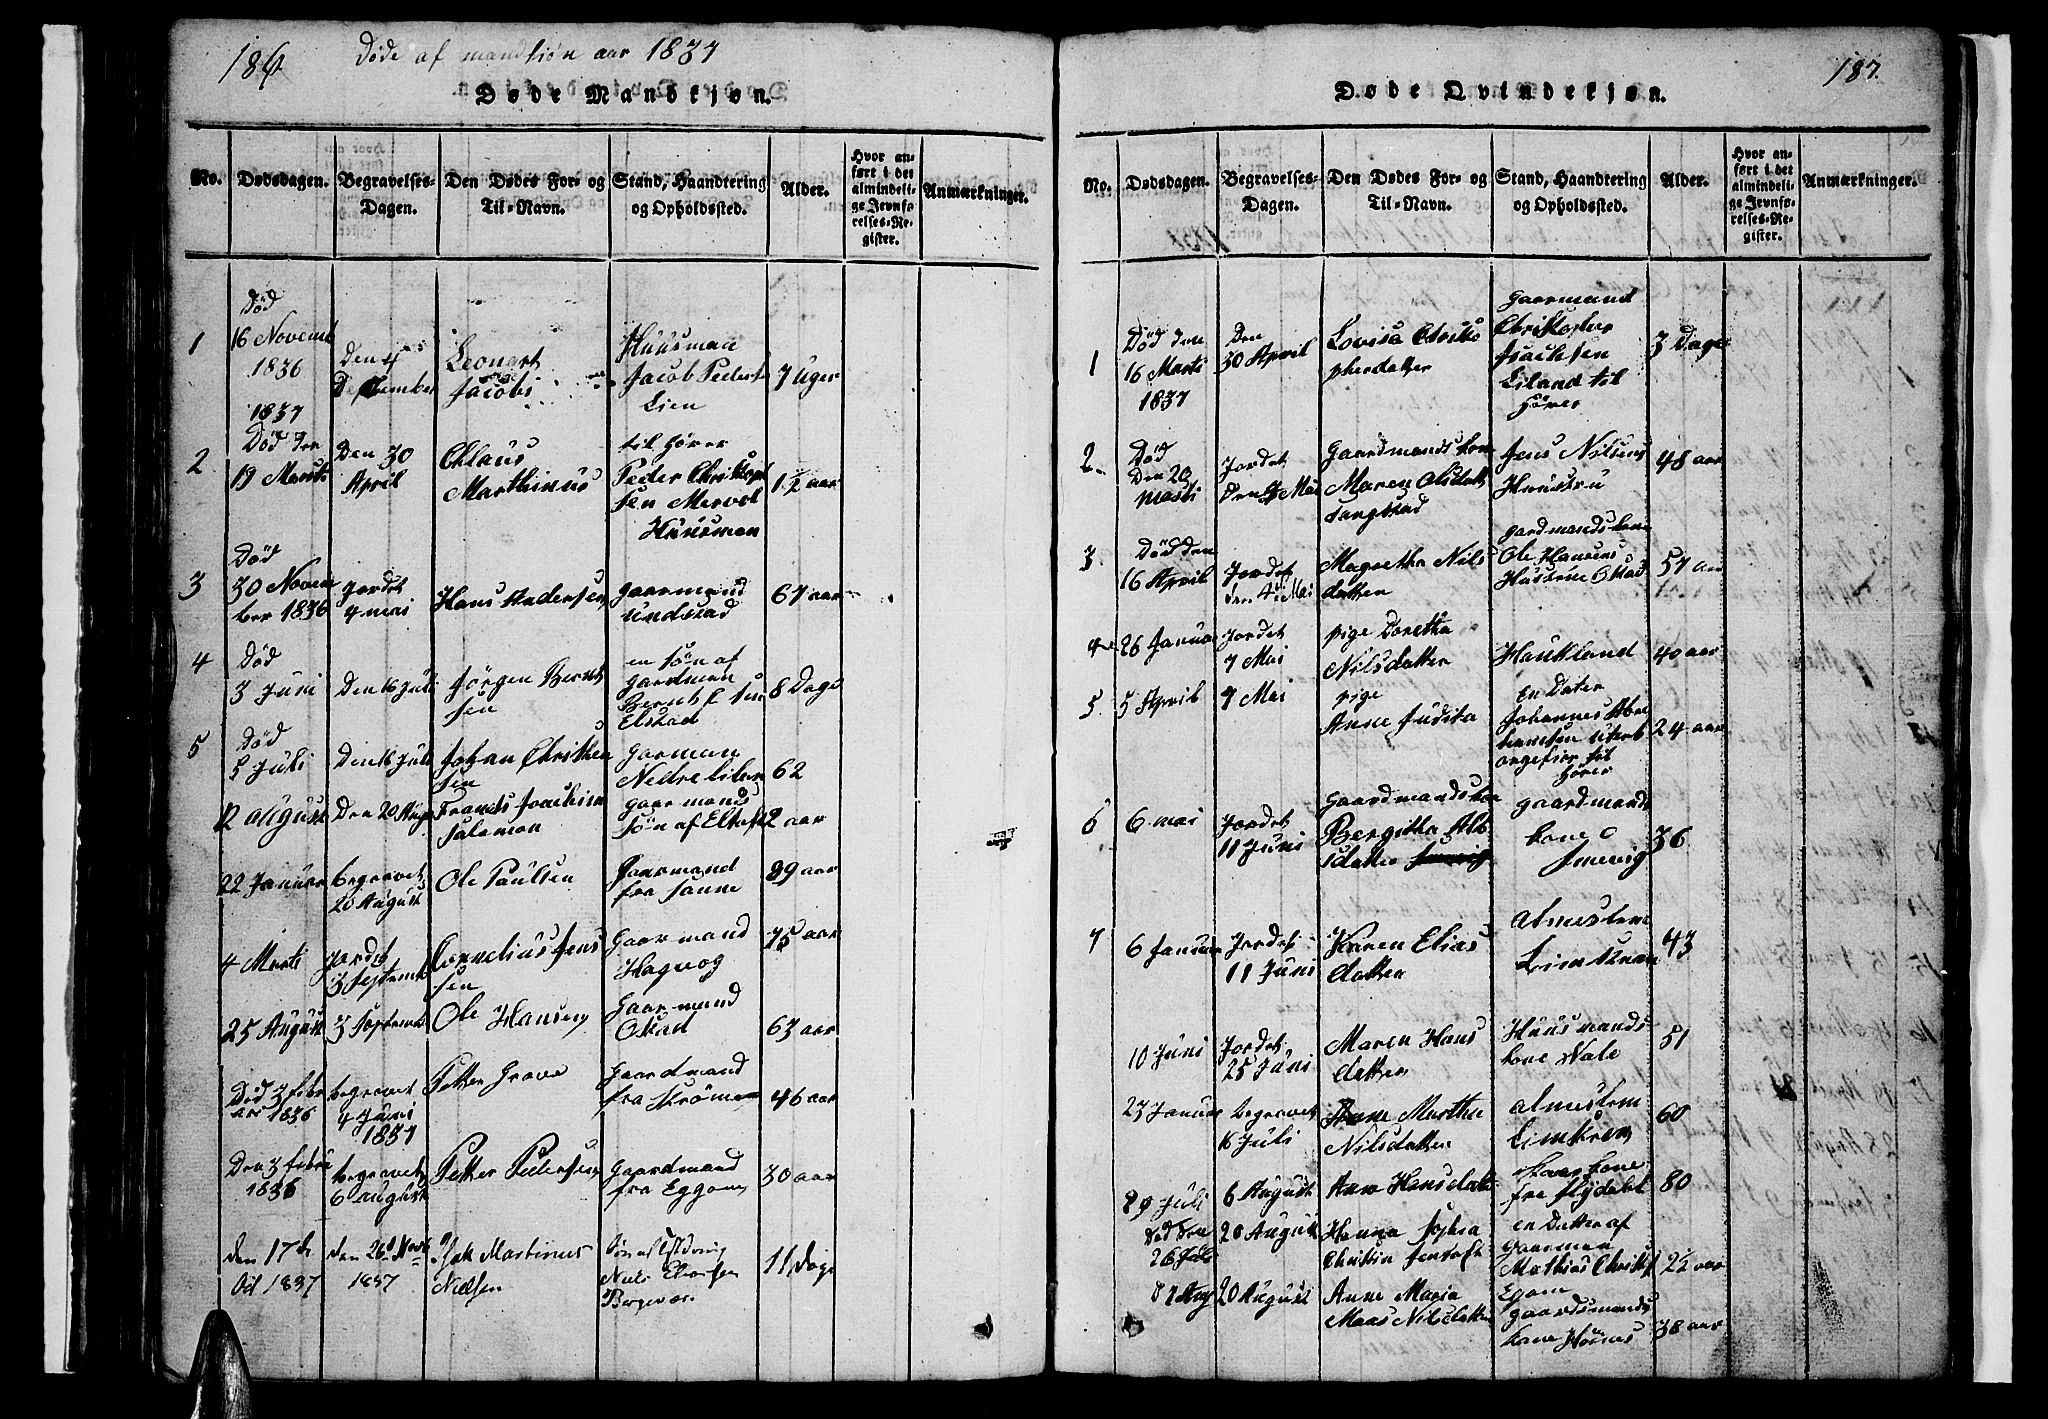 186
Døde af mandkiøn aar 1837
Døde Mandkjøn.
No.
Dødsdagen.
Begravelses-
Dagen.
Den Dødes For- og
Til-Navn.
Stand, Haandtering
og Opholdssted.
Alder.
Hvor an-
ført i det
almindeli-
ge Jevnfø-
relses-Re-
gister.
Anmærkninger.
1
Død
16 Novemb
1836
Den 4
December
Leonart
Jacobs
Huusman
Jacob Peders
Lien
7 Uger
2
1837
Død den
19 Marts
Den 30
April
Claus
Marthinus
til hører
Peder Christoph
sen Mervol
Huusman
1 1/2 aar
3
Død
30 Novem
ber 1836
jordet
4 mai
Hans Andersen
gaarmand
Undstad
67 aar
4
Død
3 Juni
Den 16 Juli
Jørgen Bernt
sen
en søn af
gardman
Elstad
8 Dage
5
Død
5 Juli
Den 16 Juli
Johan Christen
sen
garman
Nedre
62
12 August
Den 20 Augu
Frants Joachim
Salamon
gaarmands
søn af Elstad
2 aar
22 Januar
begravet
20 August
Ole Paulsen
Gaarmand
fra Sanne
89 aar
4 Marts
Jordet
3 Septemb
Cornelius Jens
sen
Gaarmand
Hagvog
75 aar
25 August
3 Septemb
Ole Hansen
Gaarmand
Okstad
63 aar
Død 3 febru
ar 1836
begravet
4 Juni
1837
Petter Grave
Gaardmand
fra Strømen
46 aar
Den 3 febru
1836
begravet
6 august
Petter Pedersen
Gaardmand
fra Eggom
30 aar
den 17de
Oct 1837
den 26d Novb
1837
Isak Martinus
Nielsen
Niels
11 Dage
187.
Døde Qvindekjøn.
No.
Dødsdagen.
Begravelses-
Dagen.
Den Dødes For- og
Til-Navn.
Stand, Haandtering
og Opholdssted.
Alder.
Hvor an-
ført i det
almindeli-
ge Jevnfø-
relses-Re-
gister.
Anmærkninger.
1
Død den
16 Marts
1837
Den
30 April
Lovisa Christo
pherdatter
gaarmand
Christopher
Isachsen
Liland til
hører
3 Dage
2
Død
Den 20
Marts
Jordet
Den 4 Mai
Gaardmandskone
Maren Olsdatt
Jens Nilsens
Huustru
48 aar
3.
Død den
16 April
Jordet
den 4de Mai
Magretha Nils
datter
gardmands kone
Ole Hansens
Hustrue Okstad
57 aar
4
26 Januar
Jordet
7 Mai
pige Doretha
Nilsdatter
Haukland
40 aar
5
5 April
7 Mai
pige
Anne Judita
En Dater
Johannes Abra
hamsen
til
hører
24 aar
6
6 mai
Jordet
11 Juni
Gaardmandskone
Bergitha
sdatter
gaardmands
kone
Smevig
36
7
6 Januar
Jordet
11 Juni
Karen Elias
datter
almestem
43
10 Juni
Jordet
25 Juni
Maren Hans
datter
Huusmands
kone Vale
51
23 Januar
begravet
16 Juli
Anne Martha
Nilsdatter
almestem
60
29 Juli
6 August
Anne Hansdatt
kone
80
Død den
26 Juli
20 August
Hanna Sophia
Christin Jentoft
en Datter af
gaarman
Mathias Christ
Egom
2 1/2 aar
7 Aug
20 August
Anne Maria
Maas Nilsdatter
gaardsmands
kone
38 aar